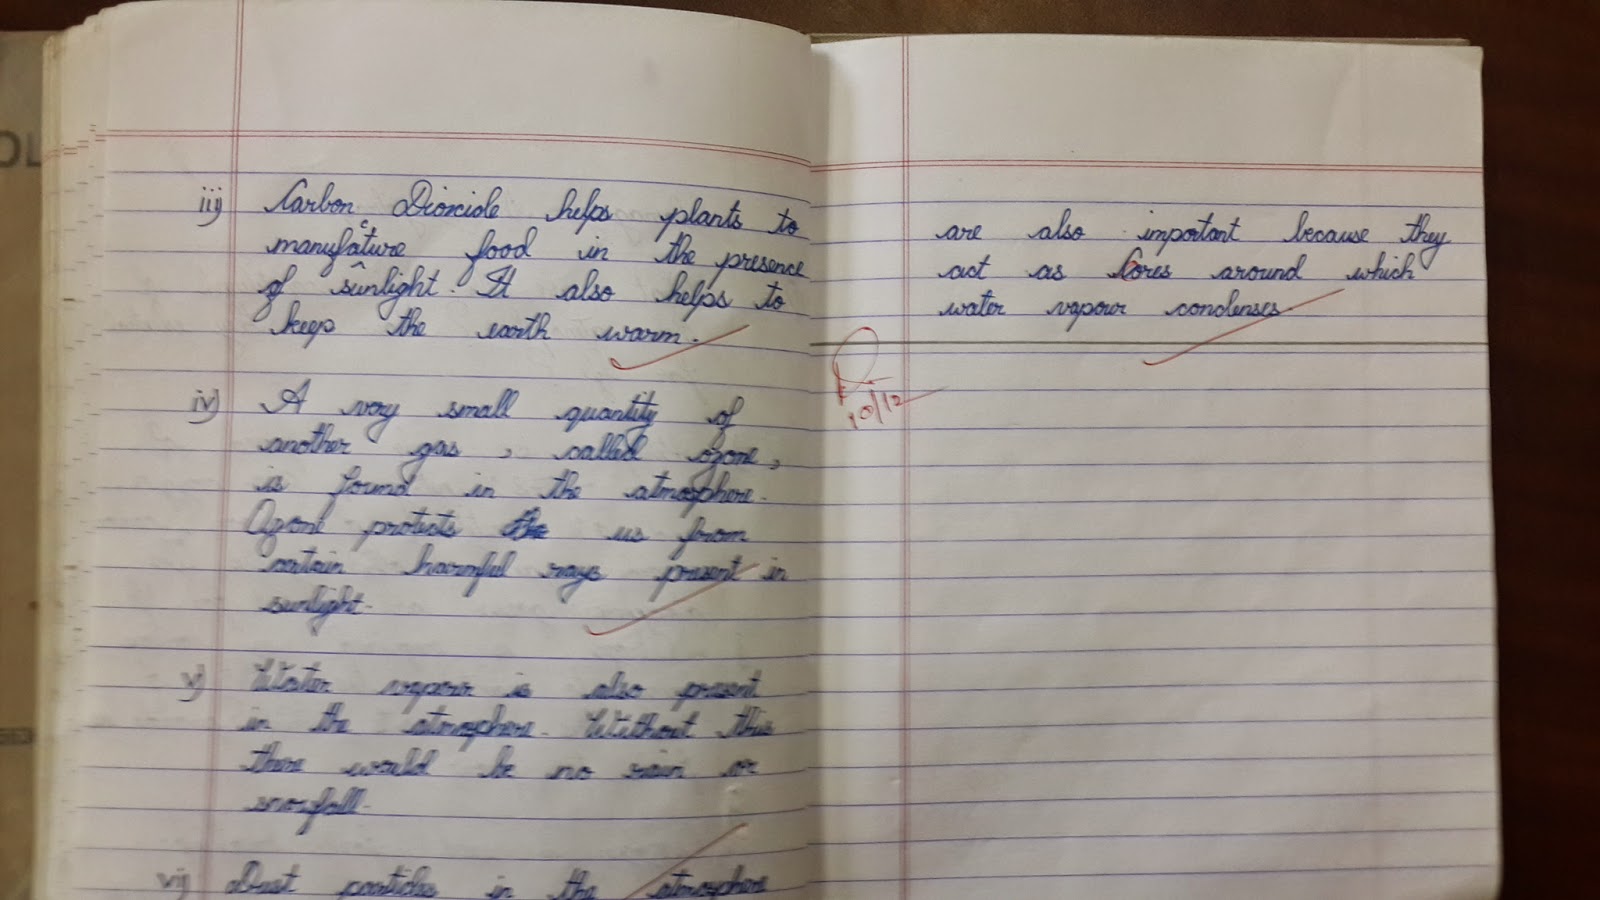 iii) Carbon Dioxide helps plants to
manufacture food in the presence
of sunlight. It also helps to
keep the earth warm.
iv) A very small quantity of
another gas, called ozone,
is found in the atmosphere.
Ozone protects the us from
certain harmful rays present in
sunlight.
v) Water vapour is also present
in the atmosphere. Without this
there would be no rain or
snowfall.
vi) Dust particles in the atmosphere
are also important because they
act as Cores around which
water vapour condenses
10/12